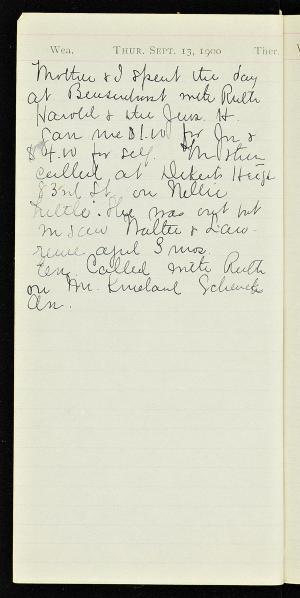 Wea. THUR. SEPT. 13, 1900 Ther.
Mother & I spent the day
at Bensonhurst with Ruth
Harold & the Jrs. H.
gave me $1.00 for Jr &
$4.00 for self. Mother
called at Dekert's Heigh
83rd St. on Nellie
She was out but
M saw Walter & Law-
rence aged 3 mos.
Called with Ruth
on Mr. Kneeland Schenck
an.